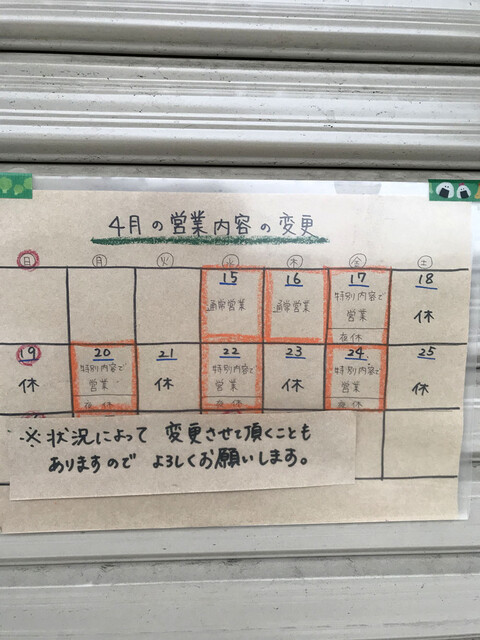 4月の営業内容の変更
日 月 火 水 木 金 土
15 16 17 18
通常営業 通常営業 特別内容で 休
営業
夜休
19 20 21 22 23 24 25
休 特別内容で 休 特別内容で 休 特別内容で 休
営業 営業 営業
夜休 夜休 夜休
※状況によって 変更させて頂くことも
ありますので よろしくお願いします。